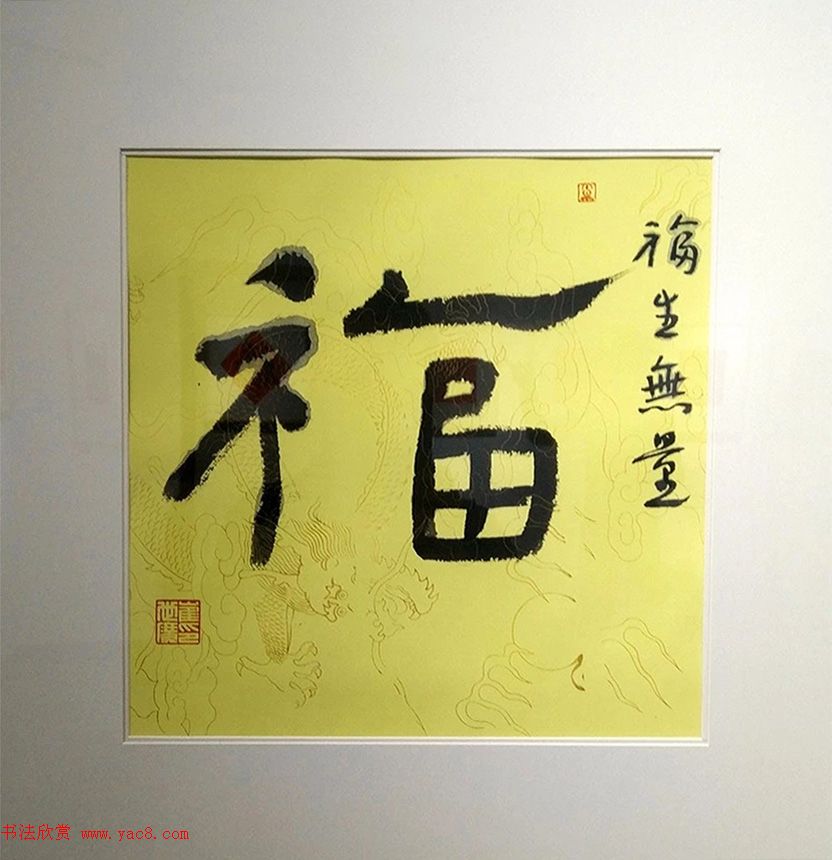 福
福生無量
书法欣赏 www.yac8.com